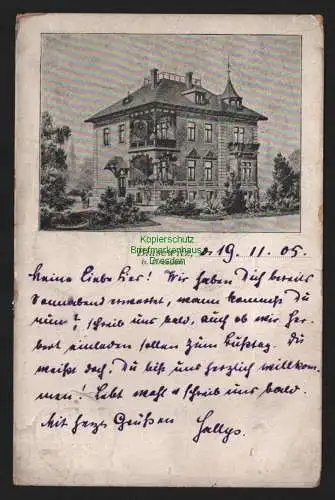 Kopierschutz
Briefmarken
Goldhahn
Blasewitz, d. 19. 11. 05.
Meine liebe ! Wir haben Dich bereits
Sonnabend erwartet, wann kommst Du
nun? Schreib uns bald, auch ob wir Her-
bert einladen sollen zum Bußtag. Du
weißt doch, Du bist uns herzlich willkom-
men! Lebt wohl u schreib uns bald.
Mit herzl Grüßen